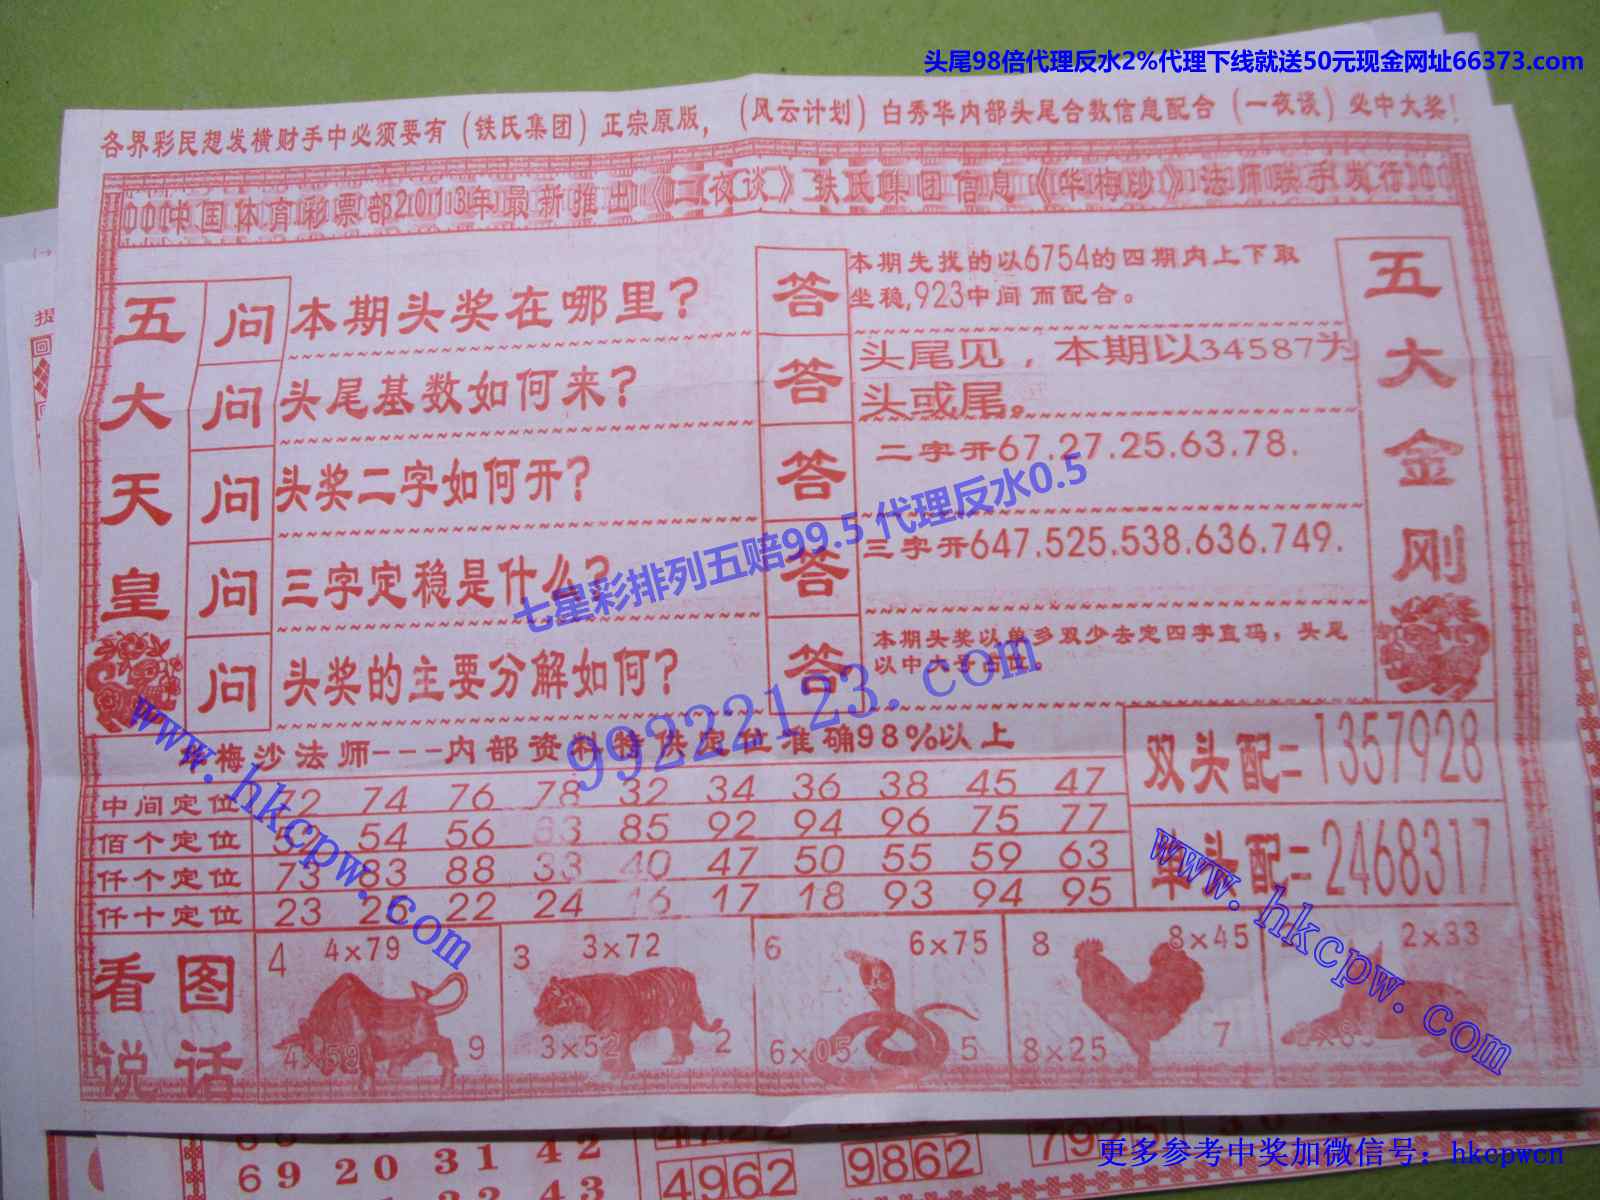 头尾98倍代理反水2%代理下线就送50元现金网址66373.com
各界彩民想发横财手中必须要有（铁氏集团）正宗原版，（风云计划）白秀华内部头尾合数信息配合（一夜谈）必中大奖！
中国体育彩票部2013年最新推出《二夜谈》铁氏集团信息《华梅沙》法师联手发行
五大天皇
问 本期头奖在哪里？
答 本期先找的以6754的四期内上下取
坐稳,923中间而配合。
问 头尾基数如何来？
答 头尾见，本期以34587为
头或尾。
问 头奖二字如何开？
答 二字开67.27.25.63.78.
问 三字定稳是什么？
答 三字开647.525.538.636.749.
问 头奖的主要分解如何？
答 本期头奖以单多双少去定四字直码，头尾
以中大号占位。
五大金刚
七星彩排列五赔99.5 代理反水0.5
99222123.com
www.hkcpw.com
华梅沙法师---内部资料特供定位准确98%以上
中间定位 72 74 76 78 32 34 36 38 45 47
佰个定位 54 56 83 85 92 94 96 75 77
仟个定位 73 83 88 33 40 47 50 55 59 63
仟十定位 23 26 22 24 16 17 18 93 94 95
双头配=1357928
单头配=2468317
www.hkcpw.com
看图
说话
4 4×79
4×59 9
3 3×72
3×52 2
6 6×75
6×05 5
8 8×45
8×25 7
2×33
69 20 31 42
4962 9862
更多参考中奖加微信号：hkcpwcn